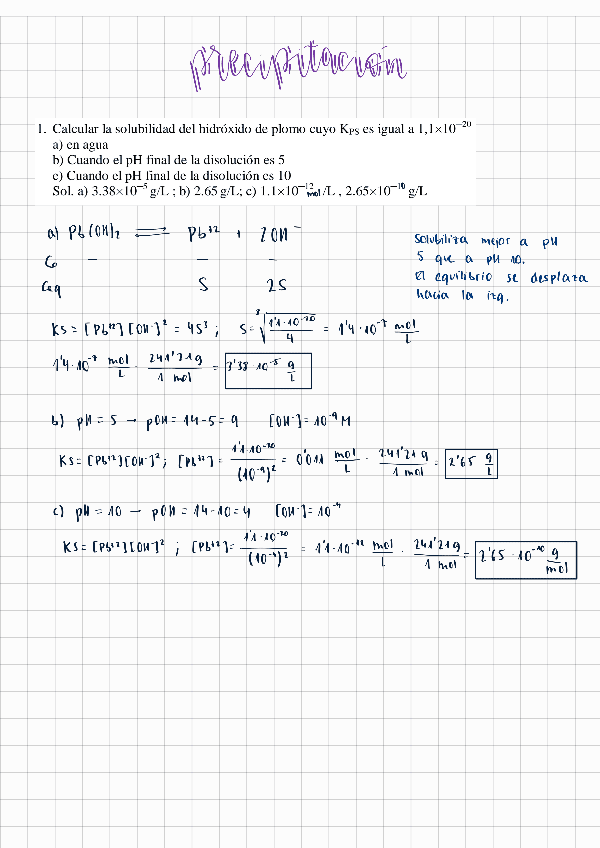 precipitación
1. Calcular la solubilidad del hidróxido de plomo cuyo K_PS es igual a 1,1×10⁻²⁰
a) en agua
b) Cuando el pH final de la disolución es 5
c) Cuando el pH final de la disolución es 10
Sol. a) 3.38×10⁻⁵ g/L ; b) 2.65 g/L; c) 1.1×10⁻¹² mol/L , 2.65×10⁻¹⁰ g/L
a) Pb(OH)₂ ⇌ Pb⁺² + 2OH⁻
C₀ – – –
Ceq S 2S
Solubiliza mejor a pH
5 que a pH 10.
El equilibrio se desplaza
hacia la izq.
KS = [Pb⁺²][OH⁻]² = 4S³ ; S = ³√(1'1·10⁻²⁰/4) = 1'4·10⁻⁷ mol/L
1'4·10⁻⁷ mol/L · 241'21g/1 mol = 3'38·10⁻⁵ g/L
b) pH = 5 → pOH = 14-5 = 9 [OH⁻] = 10⁻⁹ M
KS = [Pb⁺²][OH⁻]²; [Pb⁺²] = 1'1·10⁻²⁰/(10⁻⁹)² = 0'011 mol/L · 241'21 g/1 mol = 2'65 g/L
c) pH = 10 → pOH = 14-10 = 4 [OH⁻] = 10⁻⁴
KS = [Pb⁺²][OH⁻]² ; [Pb⁺²] = 1'1·10⁻²⁰/(10⁻⁴)² = 1'1·10⁻¹² mol/L · 241'21g/1 mol = 2'65·10⁻¹⁰ g/mol